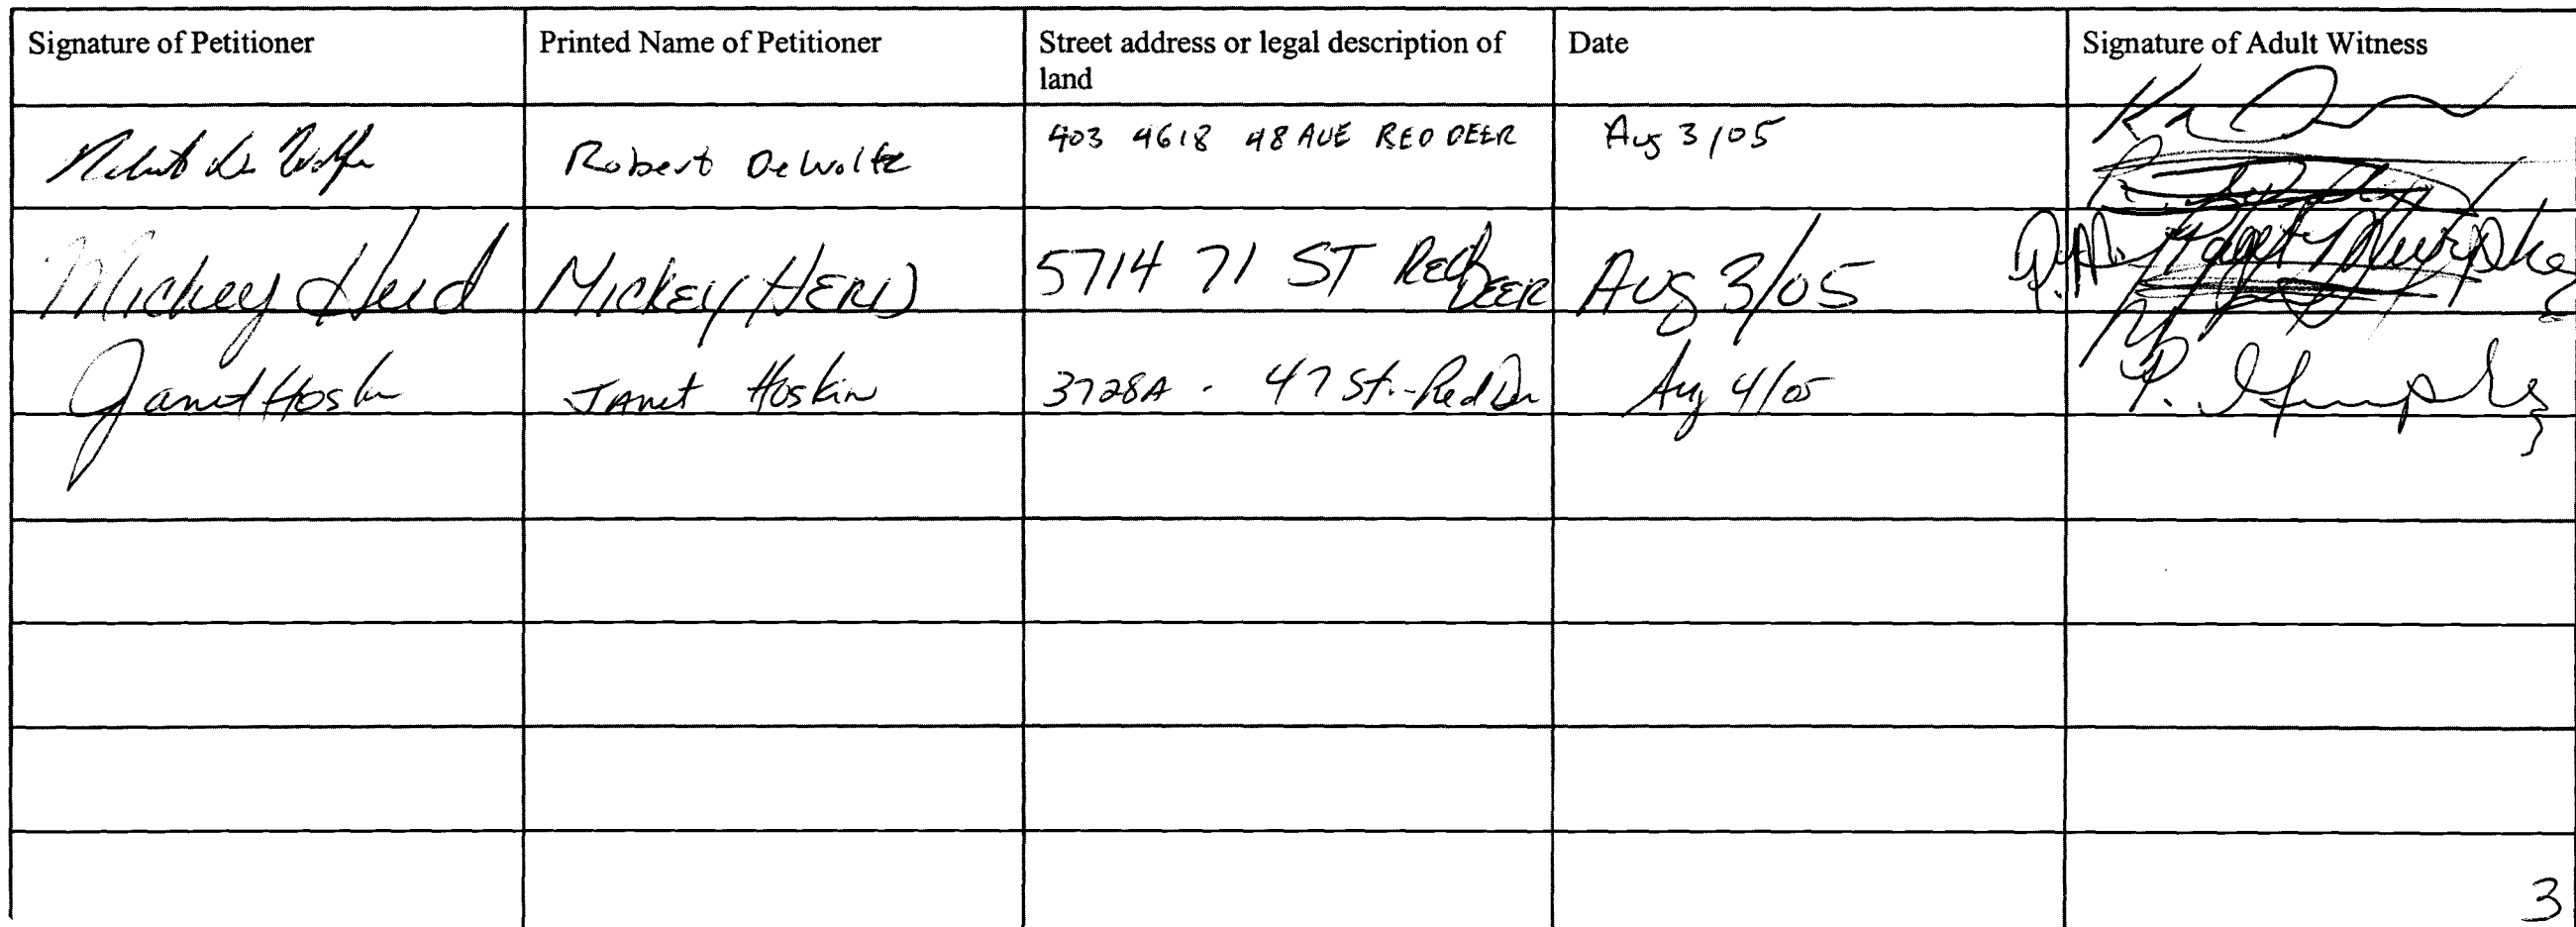 Signature of Petitioner Printed Name of Petitioner Street address or legal description of land Date Signature of Adult Witness
Robert De Wolfe Robert DeWolfe 403 4618 48 AVE RED DEER Aug 3/05
Mickey Herd MICKEY HERD 5714 71 ST RED DEER Aug 3/05
Janet Hoskin JAnet Hoskin 3728A - 47 St. - Red Dr Aug 4/05 P. Humphrey
3